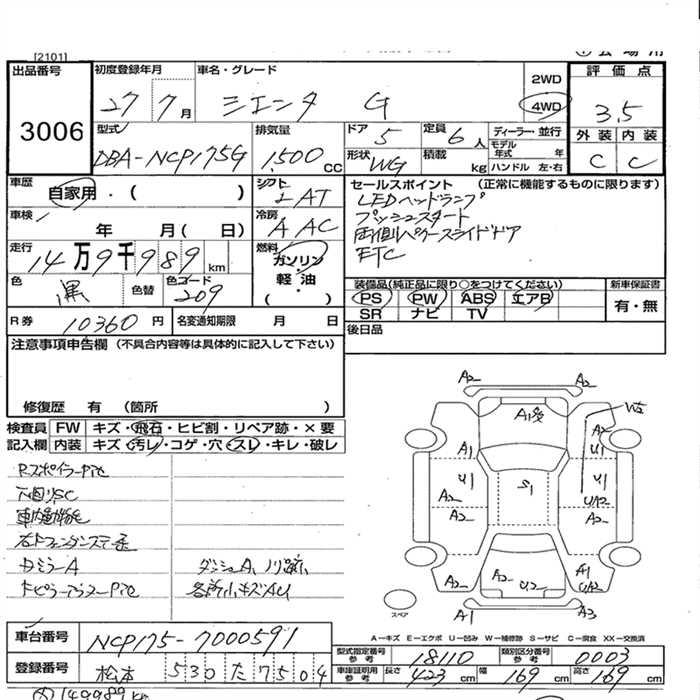 [2101]
出品番号
3006
初度登録年月
27 7月
車名・グレード
シエンタ G
2WD
4WD
評価点
3.5
外装 内装
C C
型式
DBA-NCP175G
排気量
1,500 CC
ドア 5
形状 WG
定員 6人
積載 kg
ディーラー・並行
モデル年式 年
ハンドル 左・右
車歴
自家用・( )
シフト
I AT
セールスポイント (正常に機能するものに限ります)
LEDヘッドランプ
プッシュスタート
両側パワースライドドア
ETC
車検
年 月( 日)
冷房
A AC
走行
14万9千989 km
燃料
ガソリン・
軽油
・( )
色
黒
色替
色コード
209
装備品(純正品に限り○をつけてください)
PS PW ABS エアB
SR ナビ TV
新車保証書
有・無
R券 10360 円
名変通知期限 月 日
後日品
注意事項申告欄 (不具合内容等は具体的に記入して下さい)
修復歴 有 (箇所 )
検査員
記入欄
FW キズ・飛石・ヒビ割・リペア跡・×要
内装 キズ・汚レ・コゲ・穴・スレ・キレ・破レ
下回りSC
ダッシュA、ノリ跡、
各所小キズAU
A2 A2
A1
W2
A1 U1
A2 U1 S1 U1 UA2
A2 A2
A2 U2 A1 UA2
A1 A3
スペア
A−キズ E−エクボ U−凹み W−補修跡 S−サビ C−腐食 XX−交換済
車台番号 NCP175-7000591
登録番号 松本 530 た 7504
型式指定番号 参考 18110
類別区分番号 参考 0003
車庫証明用 参考 長さ 423 cm 幅 169 cm 高さ 169 cm
149989 km